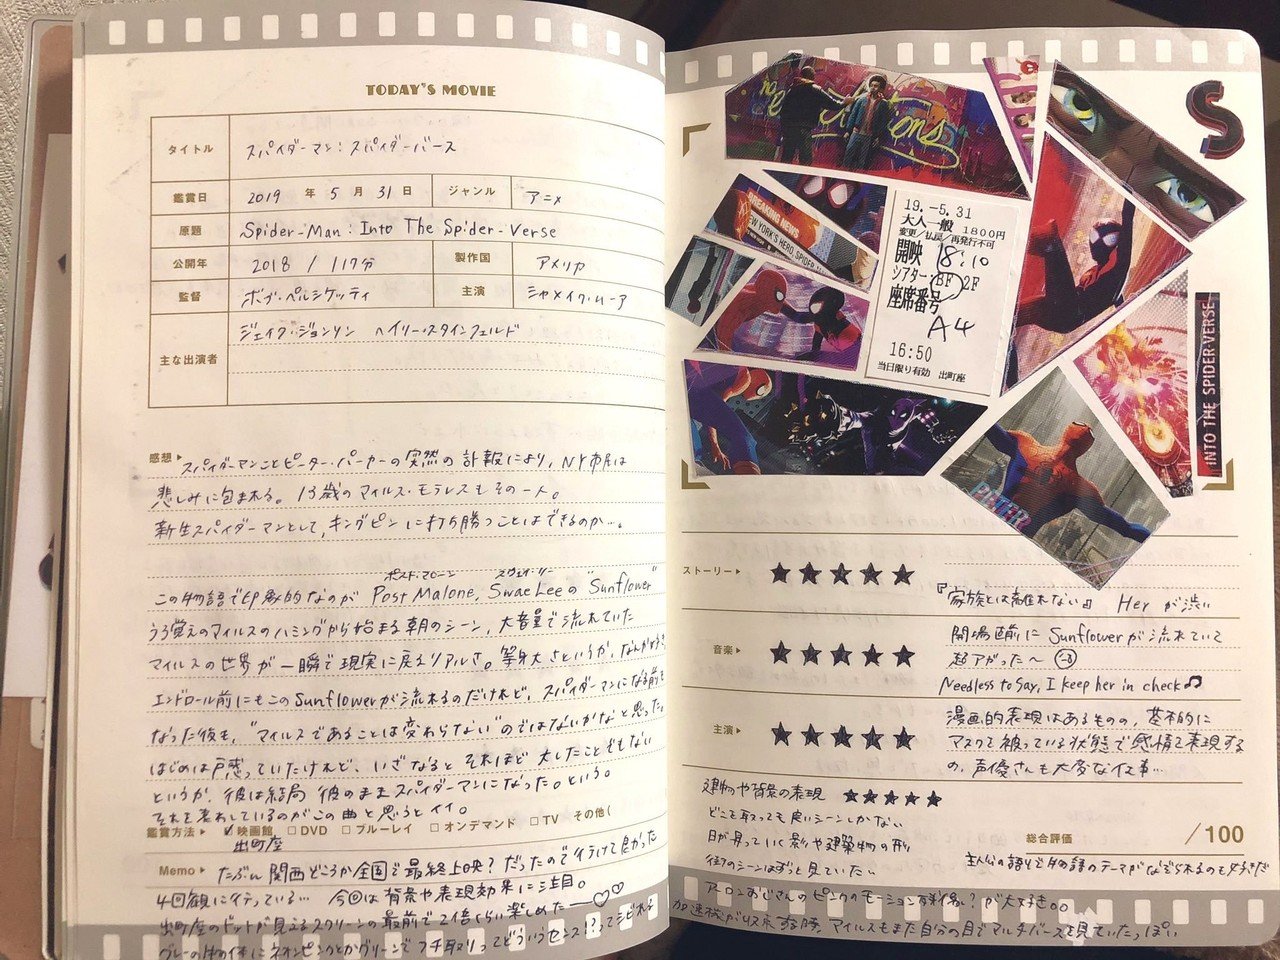 TODAY'S MOVIE
タイトル スパイダーマン：スパイダーバース
鑑賞日 2019 年 5 月 31 日 ジャンル アニメ
原題 Spider-Man : Into The Spider-Verse
公開年 2018 / 117分 製作国 アメリカ
監督 ボブ・ペルシケッティ 主演 シャメイク・ムーア
主な出演者 ジェイク・ジョンソン ヘイリー・スタインフェルド
感想▸ スパイダーマンことピーター・パーカーの突然の訃報により、NY市民は
悲しみに包まれる。13歳のマイルス・モラレスもその一人。
新生スパイダーマンとして、キングピンに打ち勝つことはできるのか…。
ポスト・マローン スウェイ・リー
この物語で印象的なのが Post Malone, Swae Leeの "Sunflower"
うろ覚えのマイルスのハミングから始まる朝のシーン、大音量で流れていた
マイルスの世界が一瞬で現実に戻るリアルさ。等身大さというか、なんか好き
エンドロール前にもこのSunflowerが流れるのだけれど、スパイダーマンになる前も
なった後も、"マイルスであることは変わらない"のではないかなと思った。
はじめは戸惑っていたけれど、いざなるとそれほど大したことでもない
というか、彼は結局 彼のままスパイダーマンになった。という。
それを表わしているのがこの曲と思うとイイ。
鑑賞方法▸ ✓映画館 □DVD □ブルーレイ □オンデマンド □TV その他(
出町座
Memo▸ たぶん関西どころか全国で最終上映？だったので行けて良かった
4回観に行っている… 今回は背景や表現効果に注目。
出町座のドットが見えるスクリーンの最前で2倍くらい楽しめた―♡♡
グレーの物体にネオンピンクとかグリーンでフチ取りってどういうセンス!?ってシビれる
S
BREAKING NEWS
NEW YORK'S HERO, SPIDER
19.-5.31
大人一般 1800円
変更/払戻/再発行不可
開映 18:10
シアター BF 2F
座席番号
A4
16:50
当日限り有効 出町座
INTO THE SPIDER-VERSE
PETER
ストーリー▸ ★★★★★
『家族とは離れない』 Her が渋い
音楽▸ ★★★★★
開場直前に Sunflowerが流れていて
超アガった～
Needless to say, I keep her in check♫
主演▸ ★★★★★
漫画的表現はあるものの、基本的に
マスクを被っている状態で感情を表現する
の、声優さんも大変な仕事…
建物や背景の表現 ★★★★★
どこを取っても良いシーンしかない
日が昇っていく影や建築物の形
街のシーンはずっと見ていたい
総合評価 /100
主人公の語りで物語のテーマがなぞられるのも好きだ
アーロンおじさんのピンクのモーション が大好き。
マイルスもまた自分の目でマルチバースを見ていたっぽい